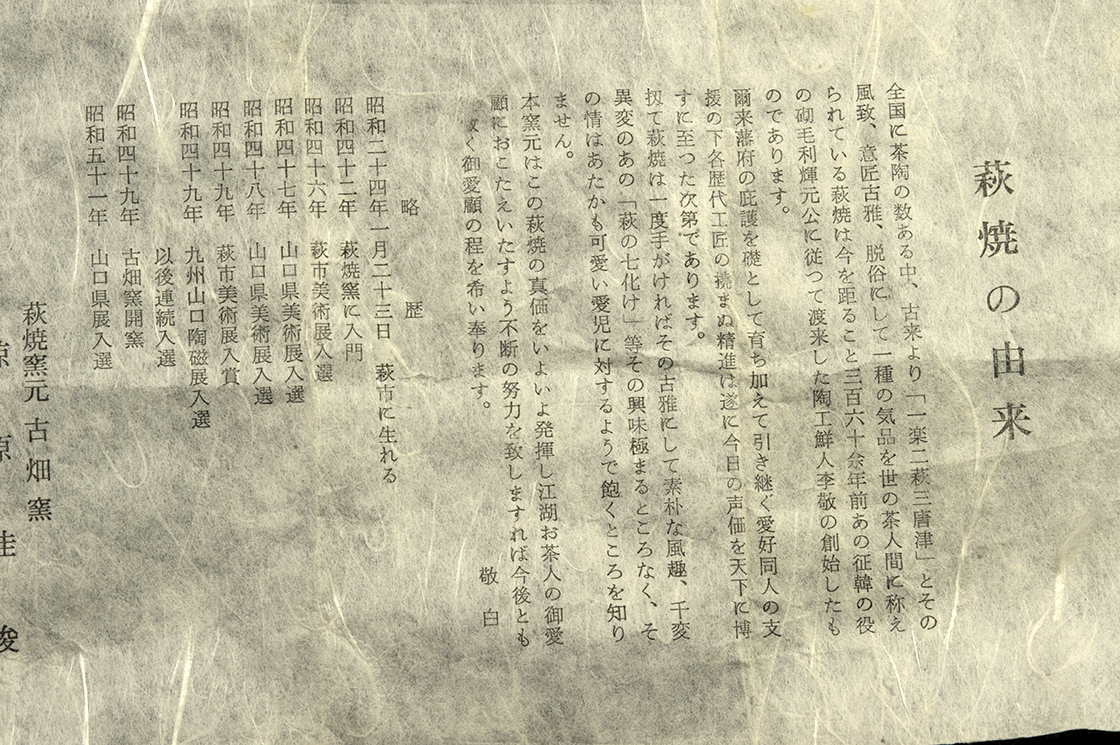 萩焼の由来
全国に茶陶の数ある中、古来より「一楽二萩三唐津」とその
風致、意匠古雅、脱俗にして一種の気品を世の茶人間に称え
られている萩焼は今を距ること三百六十余年前あの征韓の役
の砌毛利輝元公に従つて渡来した陶工鮮人李敬の創始したも
のであります。
爾来藩府の庇護を礎として育ち加えて引き継ぐ愛好同人の支
援の下各歴代工匠の撓まぬ精進は遂に今日の声価を天下に博
すに至つた次第であります。
扨て萩焼は一度手がければその古雅にして素朴な風趣、千変
異変のあの「萩の七化け」等その興味極まるところなく、そ
の情はあたかも可愛い愛児に対するようで飽くところを知り
ません。
本窯元はこの萩焼の真価をいよいよ発揮し江湖お茶人の御愛
顧におこたえいたすよう不断の努力を致しますれば今後とも
く御愛顧の程を希い奉ります。
敬白
略歴
昭和二十四年一月二十三日 萩市に生れる
昭和四十二年 萩焼窯に入門
昭和四十六年 萩市美術展入選
昭和四十七年 山口県美術展入選
昭和四十八年 山口県美術展入選
昭和四十九年 萩市美術展入賞
昭和四十九年 九州山口陶磁展入選
以後連続入選
昭和四十九年 古畑窯開窯
昭和五十一年 山口県展入選
萩焼窯元 古畑窯